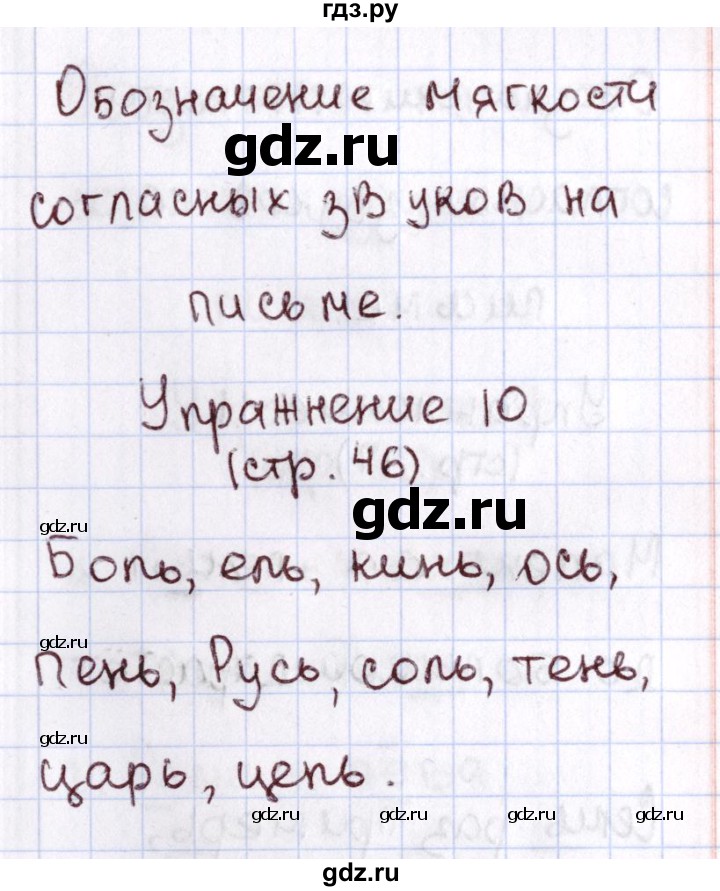 гдз.ру
Обозначение мягкости
gdz.ru
согласных звуков на
письме.
Упражнение 10
(стр. 46)
gdz.ru
gdz.ru
Боль, ель, кинь, ось,
gdz.ru
пень, Русь, соль, тень,
gdz.ru
царь, цепь.
gdz.ru
gdz.ru